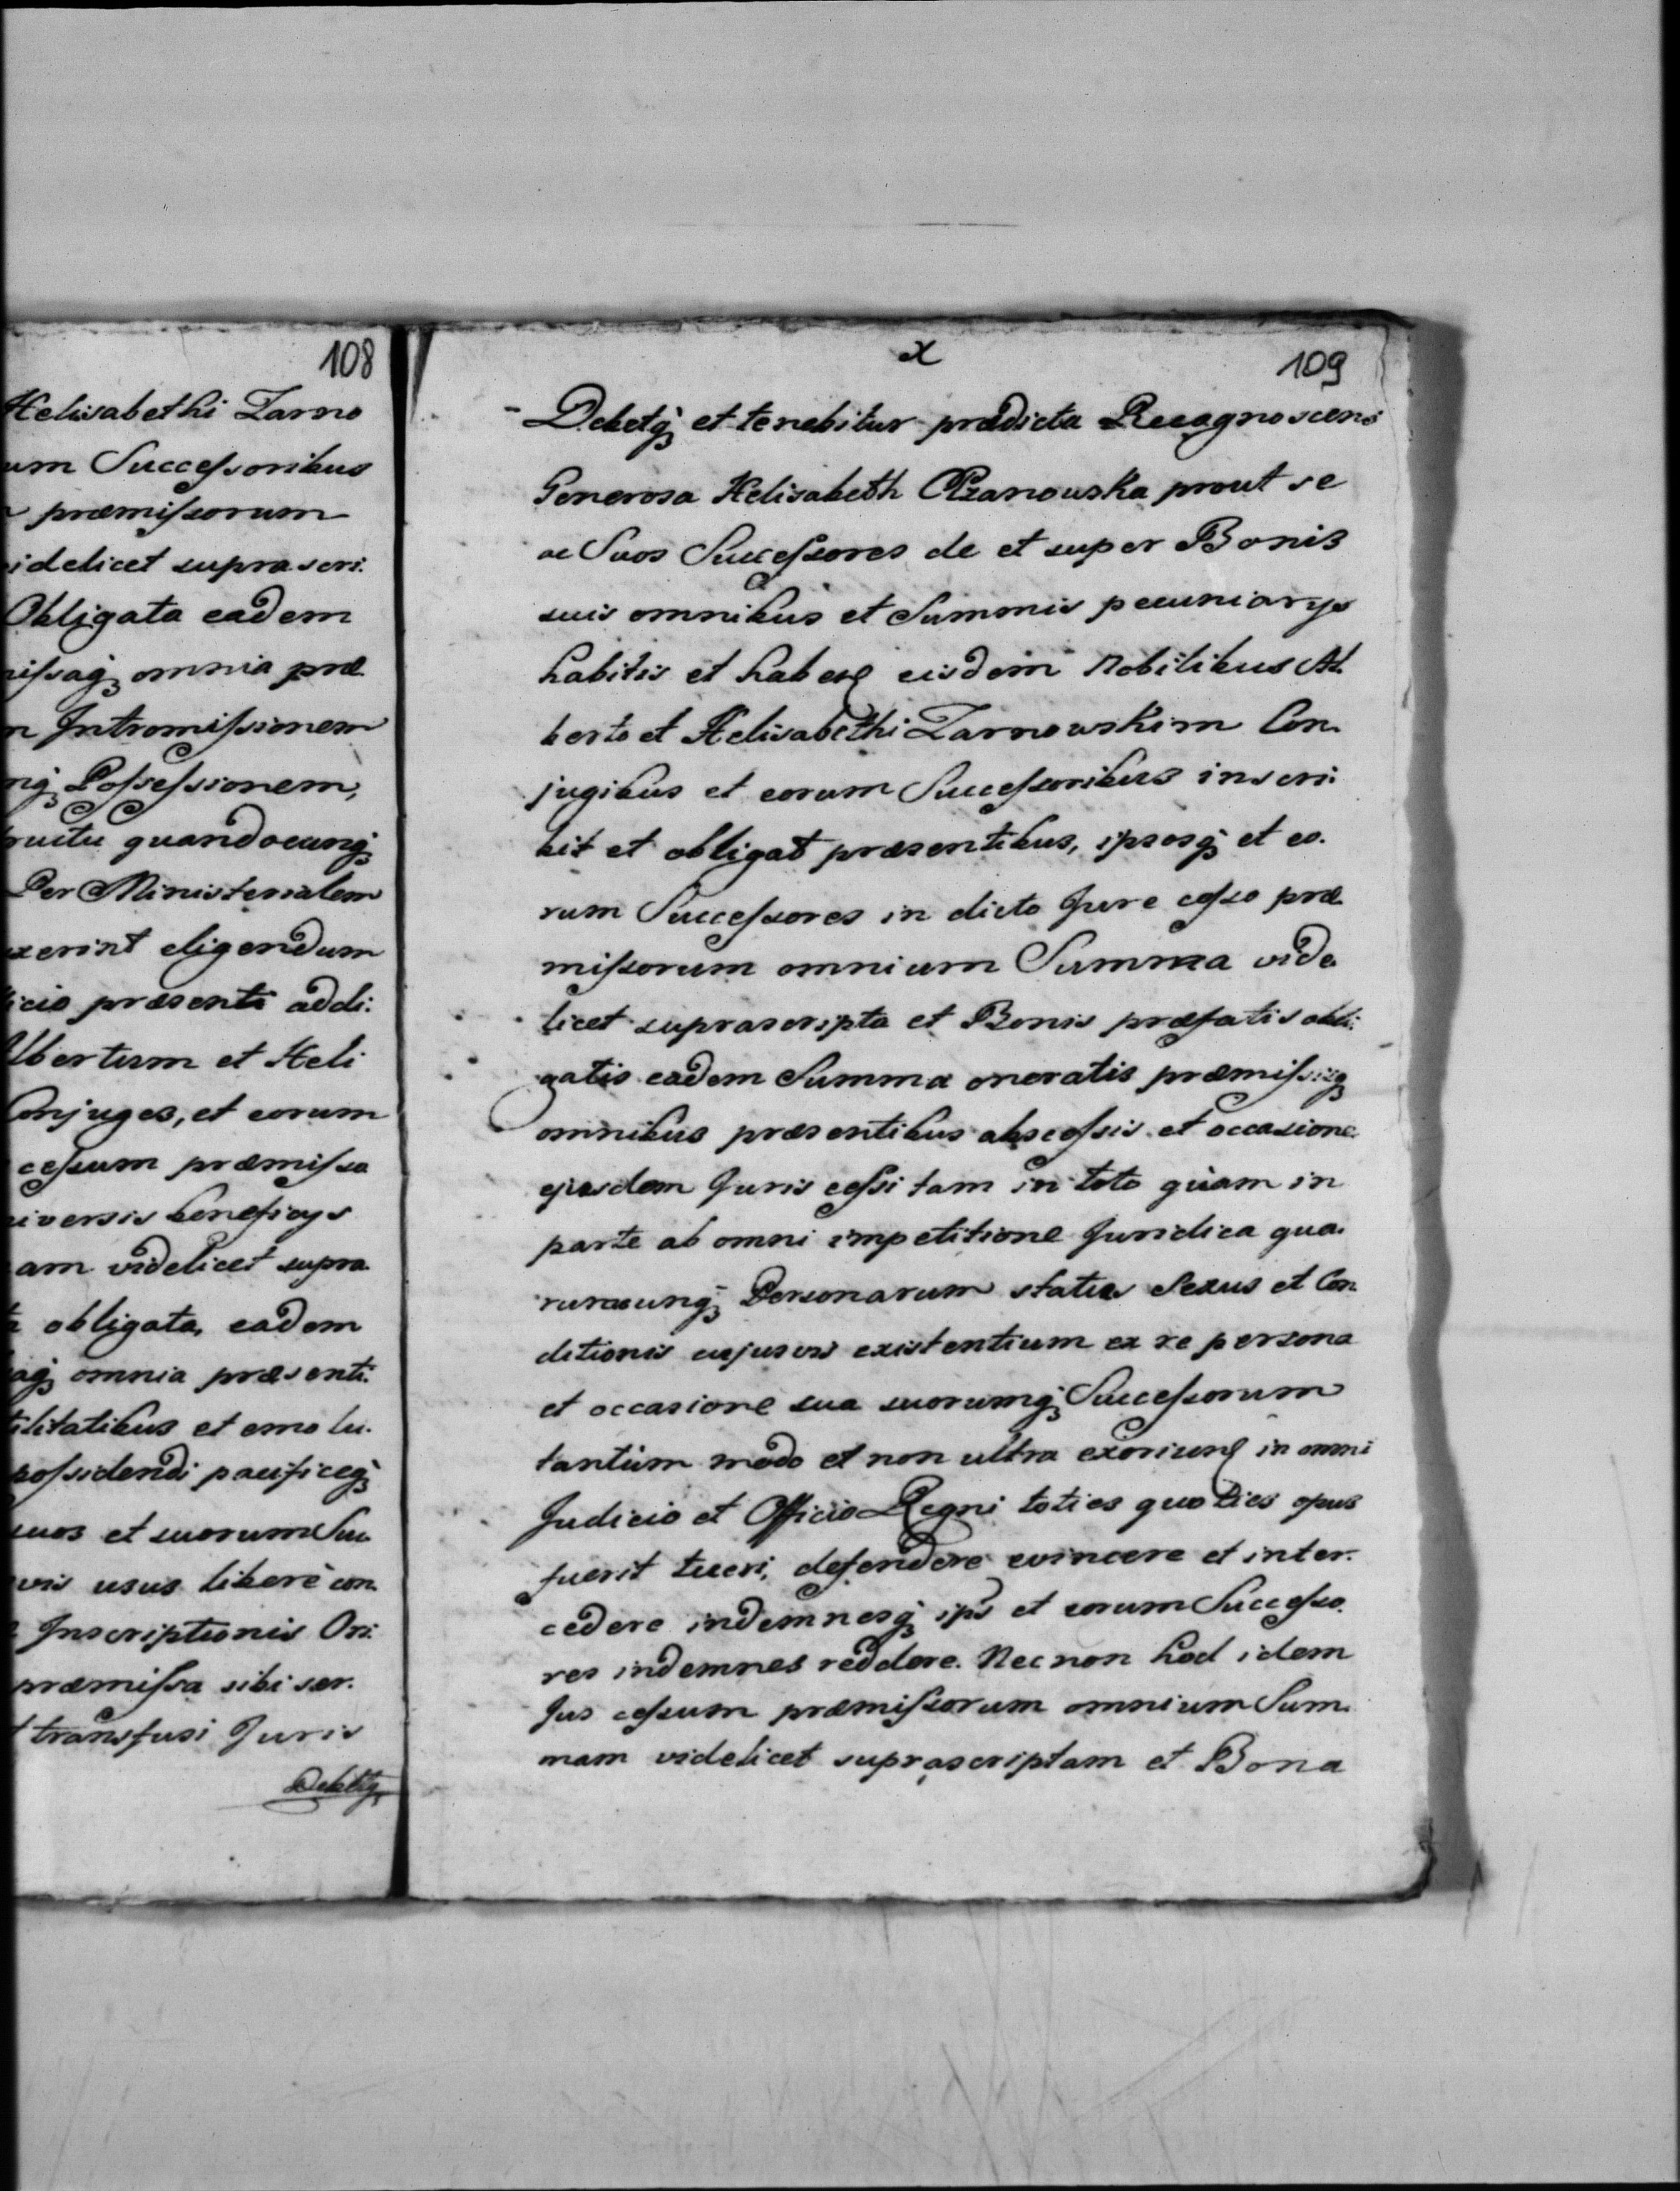 108
Helisabethi Zarno
um Successoribus
præmissorum
idelicet suprascri:
Obligata eadem
issaq; omnia præ
n Intromissionem
nq; Possessionem,
ructu quandocunq;
Per Ministerialem
xerint eligendum
icio præsenti addi:
lbertum et Heli
Conjuges, et eorum
cessum præmissa
iversis beneficijs
am videlicet supra
obligata, eadem
aq; omnia præsenti:
ilitatibus et emolu.
possidendi pacificeq;
suos et suorum Suc
vis usus liberè con
Inscriptionis Ori:
præmissa sibi ser.
transfusi Juris
Debetq;
x
109
Debetq; et tenebitur prædicta Recognoscens
Generosa Helisabeth prout se
ac Suos Successores de et super Bonis
suis omnibus et Summis pecuniarijs
habitis et haben eisdem Nobilibus Al
berto et Helisabethi Zarnowskim Con
jugibus et eorum Successoribus inscri:
bit et obligat præsentibus, ipsosq; et eo.
rum Successores in dicto Jure cesso præ
missorum omnium Summa vide
licet suprascripta et Bonis præfatis obli:
gatis eadem Summa oneratis præmissisq;
omnibus præsentibus abscessis et occasione
ejusdem Juris cessi tam in toto quàm in
parte ab omni impetitione Juridica qua.
rumcunq; Personarum status Sexus et Con
ditionis cujusvis existentium ex re persona
et occasione sua suorumq; Successorum
tantùm modo et non ultra exoriun in omni
Judicio et Officio Regni toties quoties opus
fuerit tueri, defendere evincere et inter.
cedere indemnesq; ips et eorum Successo.
res indemnes reddere. Nec non hod idem
Jus cessum præmissorum omnium Sum
mam videlicet suprascriptam et Bona